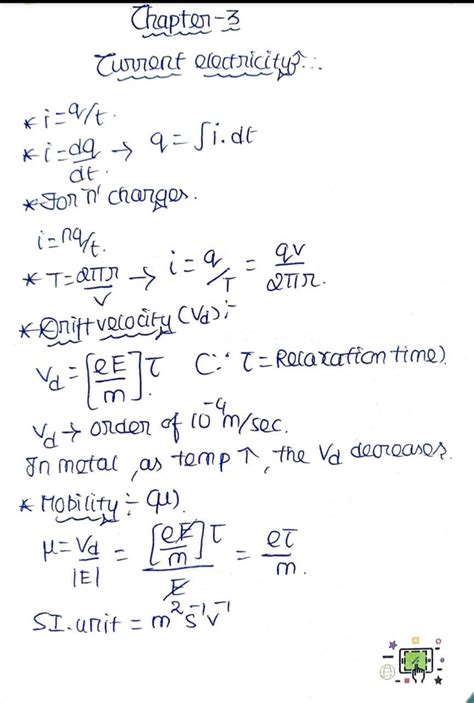 Chapter-3
Current electricity:-..
* i=q/t.
* i=dq/dt. → q = ∫i.dt
* For 'n' charges.
i=nq/t.
* T=2πr/v → i = q/T = qv/2πr.
* Drift velocity (Vd):-
Vd = [eE/m]τ (∵ τ = Relaxation time)
Vd → order of 10⁻⁴m/sec.
In metal, as temp ↑, the Vd decreases.
* Mobility :- (μ).
μ = Vd/|E| = [eE/m]τ/E = eτ/m.
SI.unit = m²s⁻¹v⁻¹